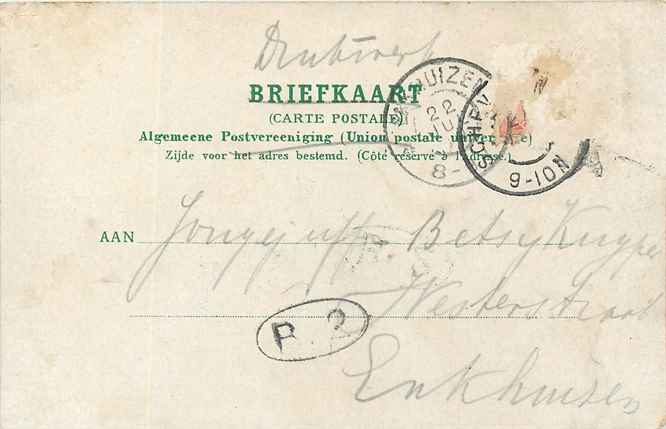 Drukwerk
BRIEFKAART
(CARTE POSTALE)
Algemeene Postvereeniging (Union postale universelle)
Zijde voor het adres bestemd. (Côté réservé à l'adresse.)
HUIZEN
22
8-
9-10 N
AAN Jongejuff Betsy Kuyper
Westerstraat
Enkhuizen
B. 2